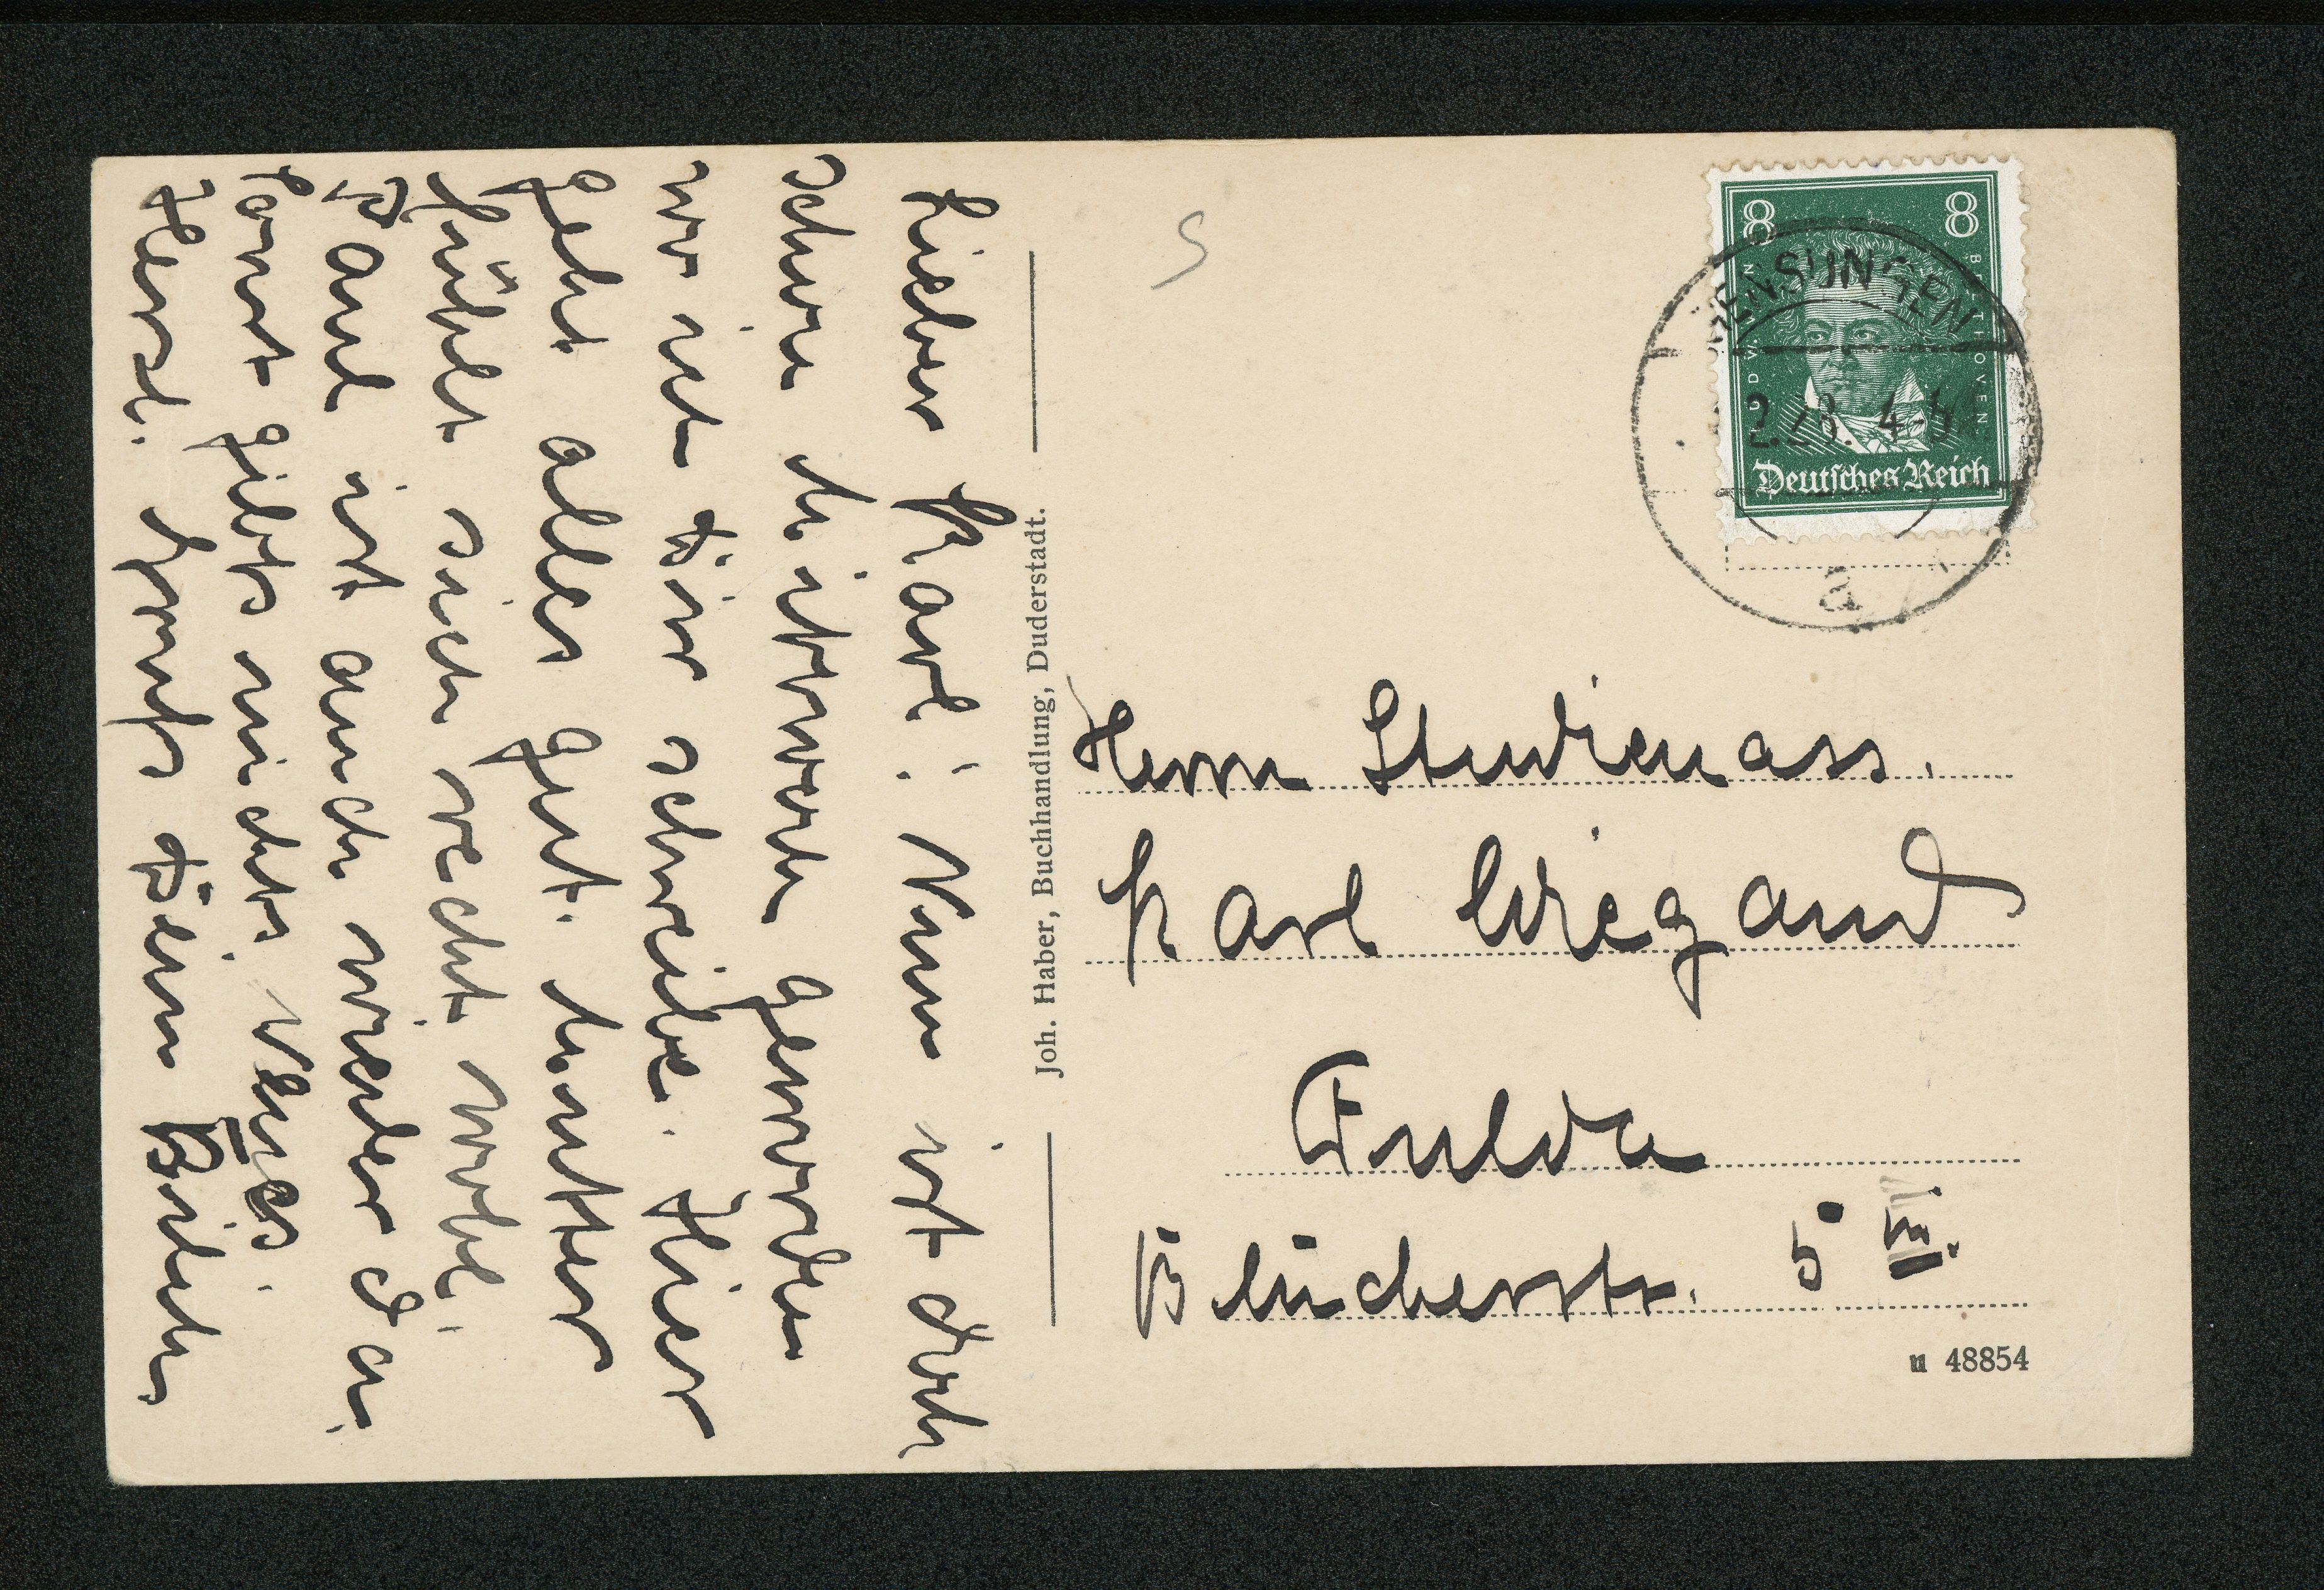 Lieber Karl! Nun ist doch
schon Mittwoch geworden
wo ich Dir schreibe. Hier
geht alles gut. Mutter
fühlt sich recht wohl.
Paul ist auch wieder da.
Sonst gibts nichts Neues.
Herzl. Gruß Dein Bruder
Joh. Haber, Buchhandlung, Duderstadt.
8 8
BEETHOVEN
Deutsches Reich
ENSUNGEN
2.28. 4-5
a
Herrn Studienass.
Karl Wiegand
Fulda
Blücherstr. 5 III
u 48854